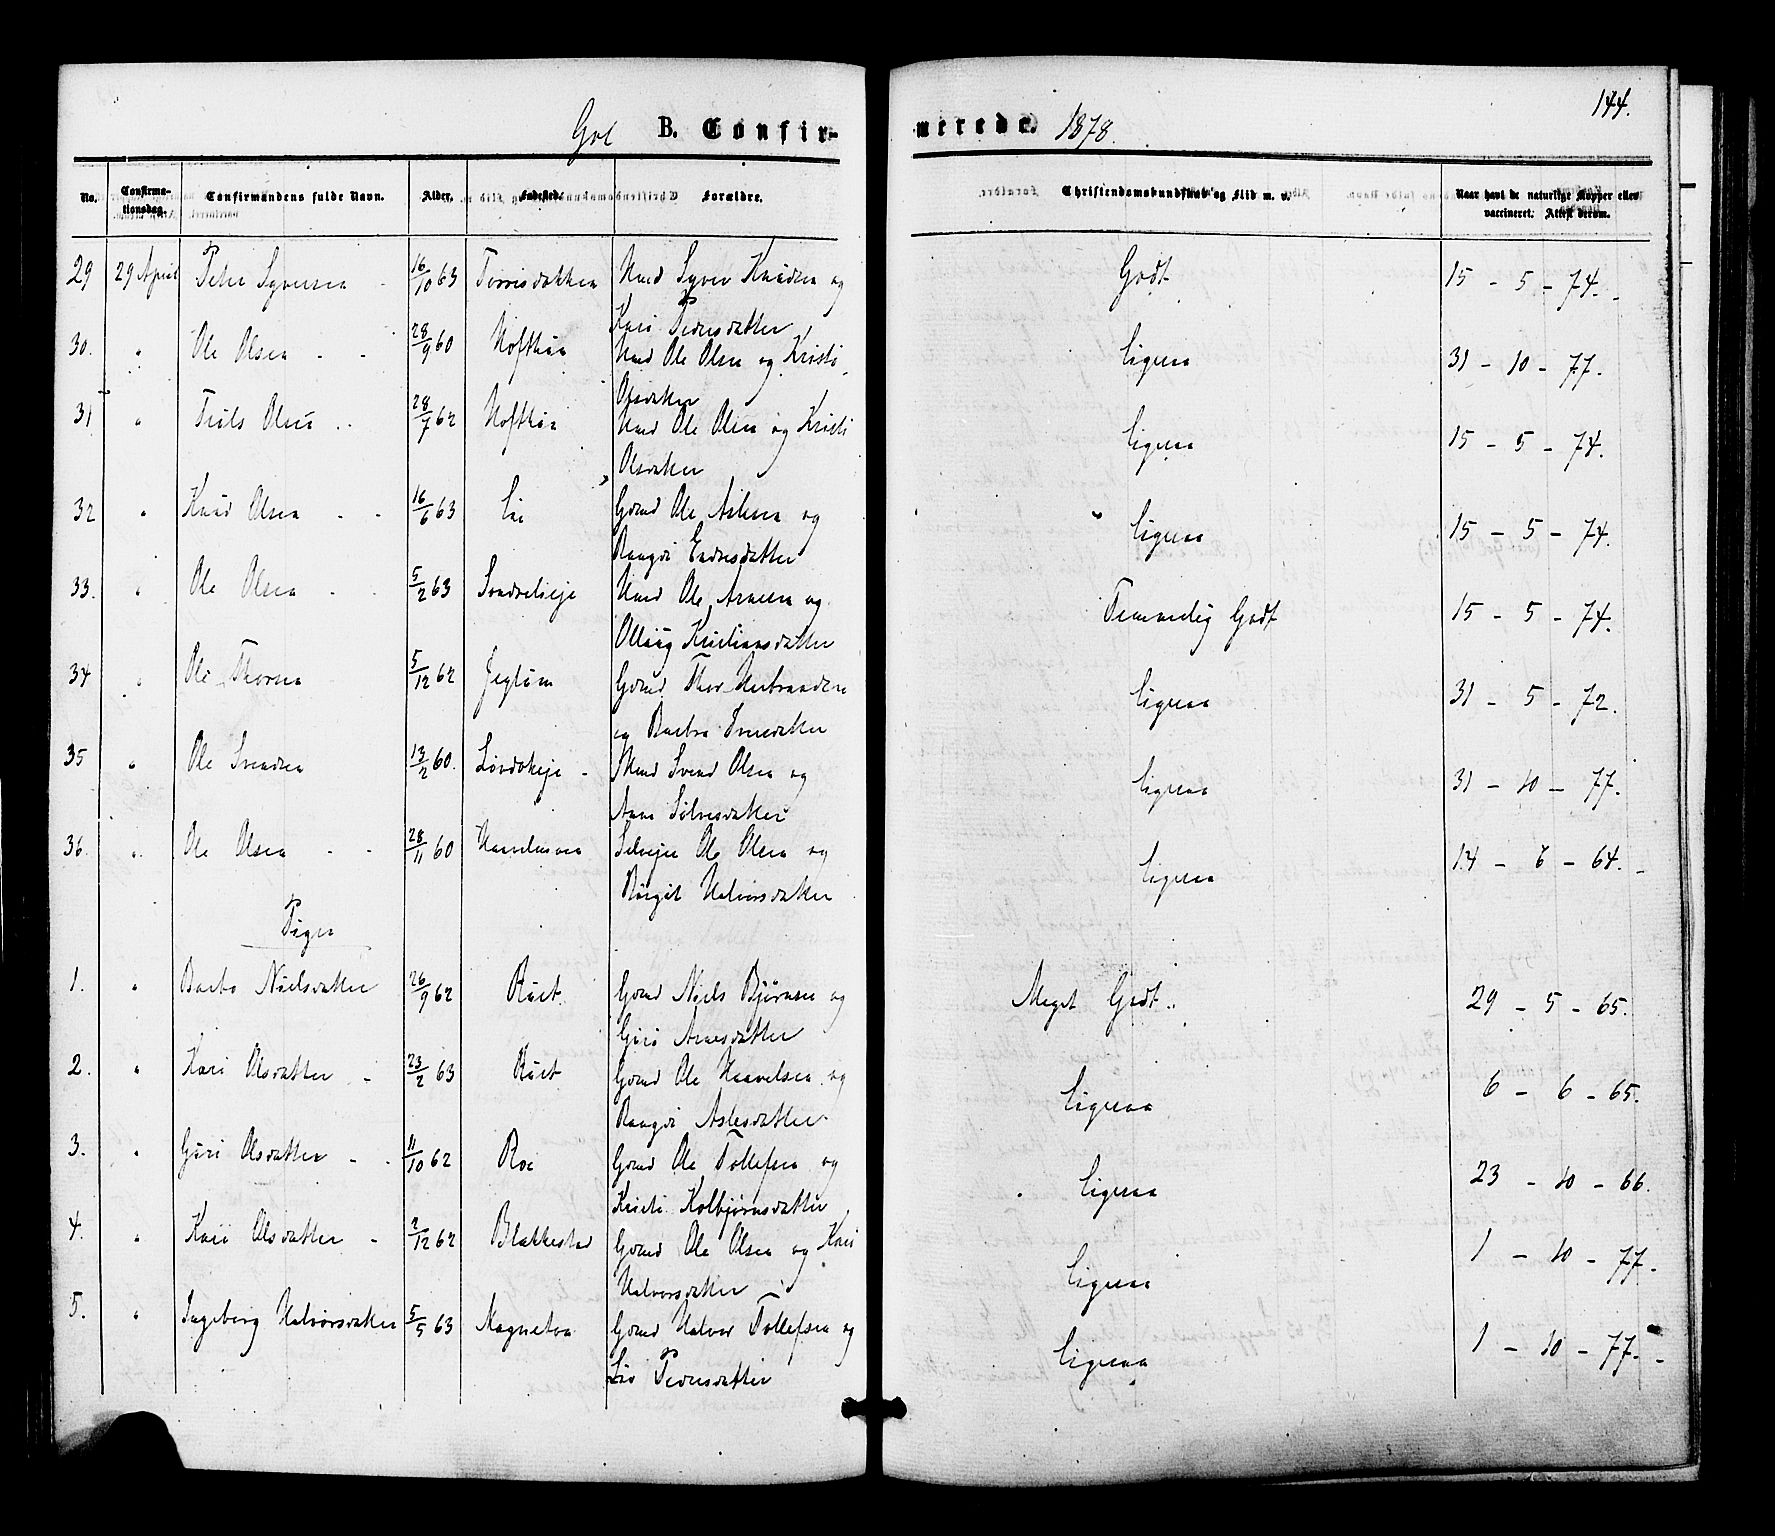 144.
Gol B. Confir- merede. 1878.
No. Confirma-tionsdag. Confirmandens fulde Navn. Alder. Fødested. Forældre. Christendomskundskab og Flid m. v. Naar havt de naturlige Kopper eller vaccineret. Attest derom.
29 29 April Peder Syversen 16/10 63 Torrisbakken Hmd Syver Knudsen og Godt 15 - 5 - 74.
Kari Pedersdatter
30. " Ole Olsen 28/9 60 Hoftun Hmd Ole Olsen og Kristi Ligesaa 31 - 10 - 77.
Olsdatter
31 " Truls Olsen 28/7 62 Hoftun Hmd Ole Olsen og Kristi Ligesaa 15 - 5 - 74.
Olsdatter
32 " Knud Olsen 16/6 63 Lie Gbmd Ole Aslesen og Ligesaa 15 - 5 - 74.
Raagdi Endresdatter
33. " Ole Olsen 5/2 63 Hmd Ole Arnesen og Temmelig Godt 15 - 5 - 74.
Ollaug Kristiansdatter
34 " Ole Thorsen 5/12 62 Jeglum Gbmd Thor Herbrandsen Ligesaa 31 - 5 - 72.
og Barbro Iversdatter
35 " Ole Svendsen 13/2 60. Hmd Svend Olsen og Ligesaa 31 - 10 - 77.
Anne Sølvesdatter
36. " Ole Olsen 28/11 60 Selveier Ole Olsen og Ligesaa 14 - 6 - 64.
Birgit Halvorsdatter
Piger
1. " Barbo Nielsdatter 26/9 62 Ruet Gbmd Niels Bjørnsen og Meget Godt 29 - 5 - 65.
Guri Arnesdatter
2. " Kari Olsdatter 23/2 63 Ruet Gbmd Ole Haavelsen og Ligesaa 6 - 6 - 65.
Raagdi Aslesdatter
3. " Guri Olsdatter 11/10 62 Roe Gbmd Ole Tollefsen og Ligesaa 23 - 10 - 66.
Kristi Kolbjørnsdatter
4. " Kari Olsdatter 2/12 62 Blakkestad Gbmd Ole Olsen og Kari Ligesaa 1 - 10 - 77.
Halvorsdatter
5. " Ingeborg Halvorsdatter 5/5 63 Magnetun Gbmd Halvor Tollefsen og Ligesaa 1 - 10 - 77.
Liv Pedersdatter